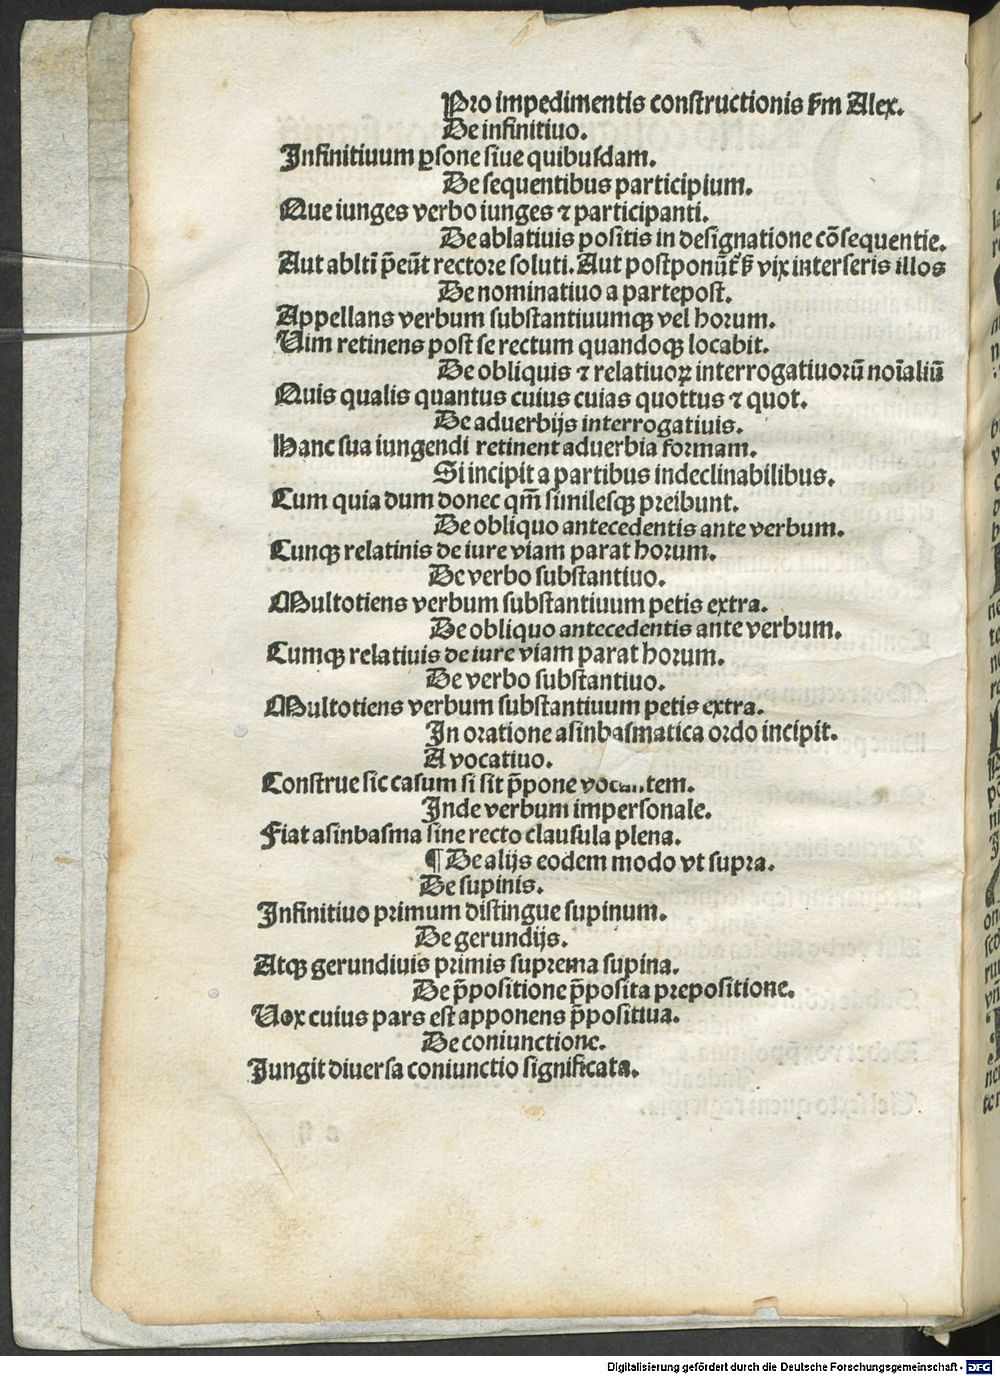 Pro impedimentis constructionis ẜm Alex.
De infinitiuo.
Infinitiuum ꝑsone siue quibusdam.
De sequentibus participium.
Que iunges verbo iunges ⁊ participanti.
De ablatiuis positis in designatione cōsequentie.
Aut ablti p̄eūt rectore soluti. Aut postponūt vix interseris illos
De nominatiuo a partepost.
Appellans verbum substantiuumqꝫ vel horum.
Uim retinens post se rectum quandoqꝫ locabit.
De obliquis ⁊ relatiuoꝝ interrogatiuorū noīaliū
Quis qualis quantus cuius cuias quottus ⁊ quot.
De aduerbijs interrogatiuis.
Hanc sua iungendi retinent aduerbia formam.
Si incipit a partibus indeclinabilibus.
Cum quia dum donec qm̄ similesqꝫ preibunt.
De obliquo antecedentis ante verbum.
Cunqꝫ relatinis de iure viam parat horum.
De verbo substantiuo.
Multotiens verbum substantiuum petis extra.
De obliquo antecedentis ante verbum.
Cumqꝫ relatiuis de iure viam parat horum.
De verbo substantiuo.
Multotiens verbum substantiuum petis extra.
In oratione asinbasmatica ordo incipit.
A vocatiuo.
Construe sic casum si sit p̄pone
Inde verbum impersonale.
Fiat asinbasma sine recto clausula plena.
¶ De alijs eodem modo vt supra.
De supinis.
Infinitiuo primum distingue supinum.
De gerundijs.
Atqꝫ gerundiuis primis suprema supina.
De p̄positione p̄posita prepositione.
Uox cuius pars est apponens p̄positiua.
De coniunctione.
Jungit diuersa coniunctio significata.
Digitalisierung gefördert durch die Deutsche Forschungsgemeinschaft - DFG